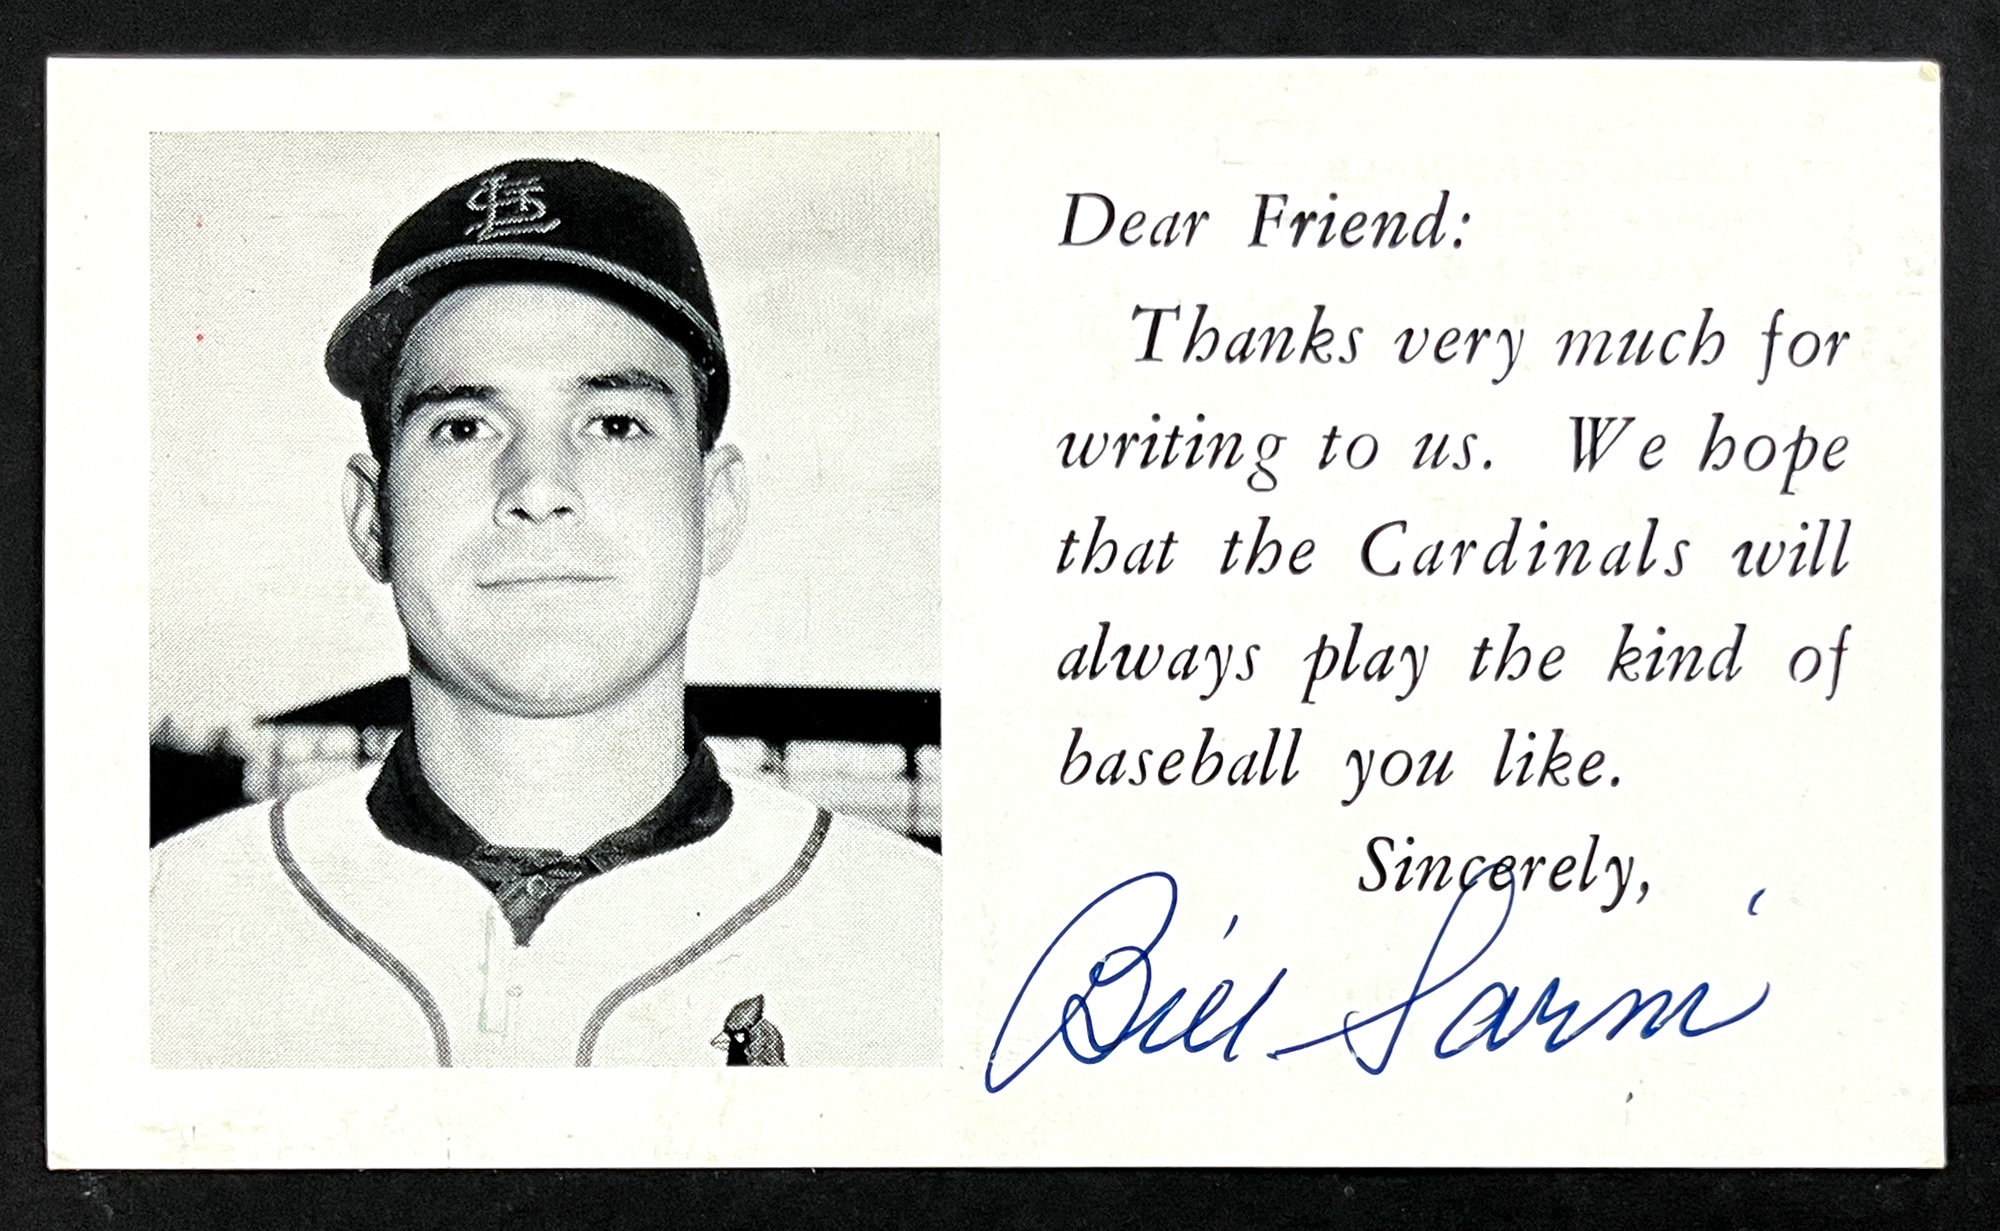 STL
Dear Friend:
Thanks very much for
writing to us. We hope
that the Cardinals will
always play the kind of
baseball you like.
Sincerely,
Bill Sarni